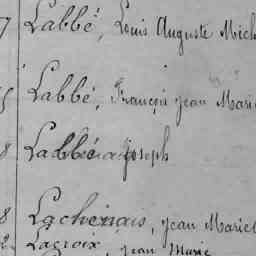 7 Labbé, Louis Auguste Mich
Labbé, François Jean Marie
8 Joseph
8 Lachenais, Jean Marie
2 Lacroix, Jean Marie